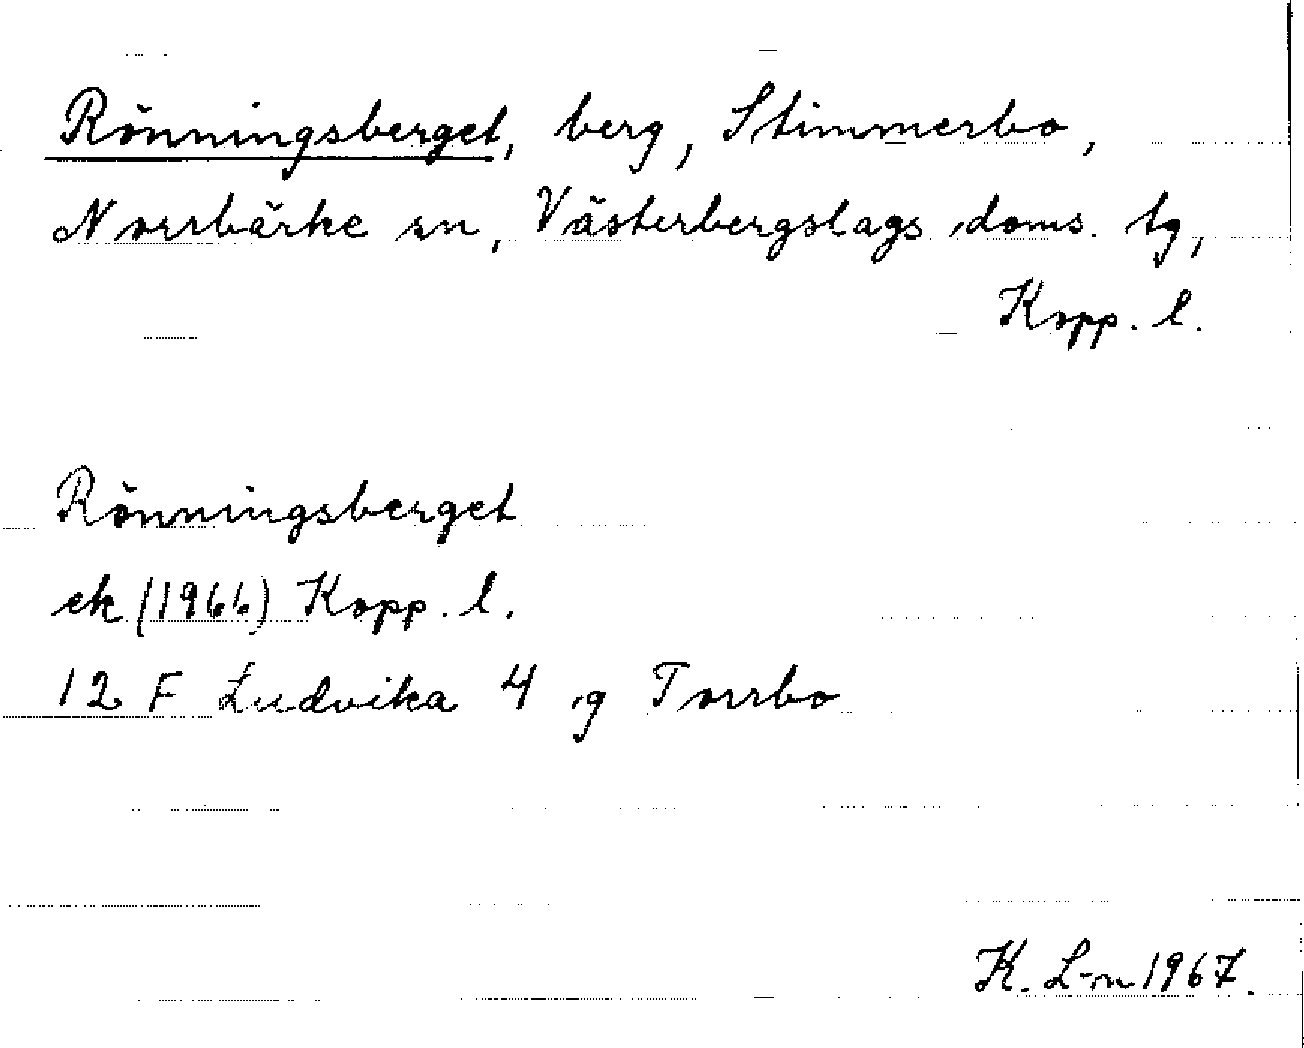 Rönningsberget, berg, Stimmerbo,
Norrbärke sn, Västerbergslags doms. tg,
Kopp. l.
Rönningsberget
ek (1966) Kopp. l.
12 F Ludvika 4 g Torrbo
K. L-m 1967.